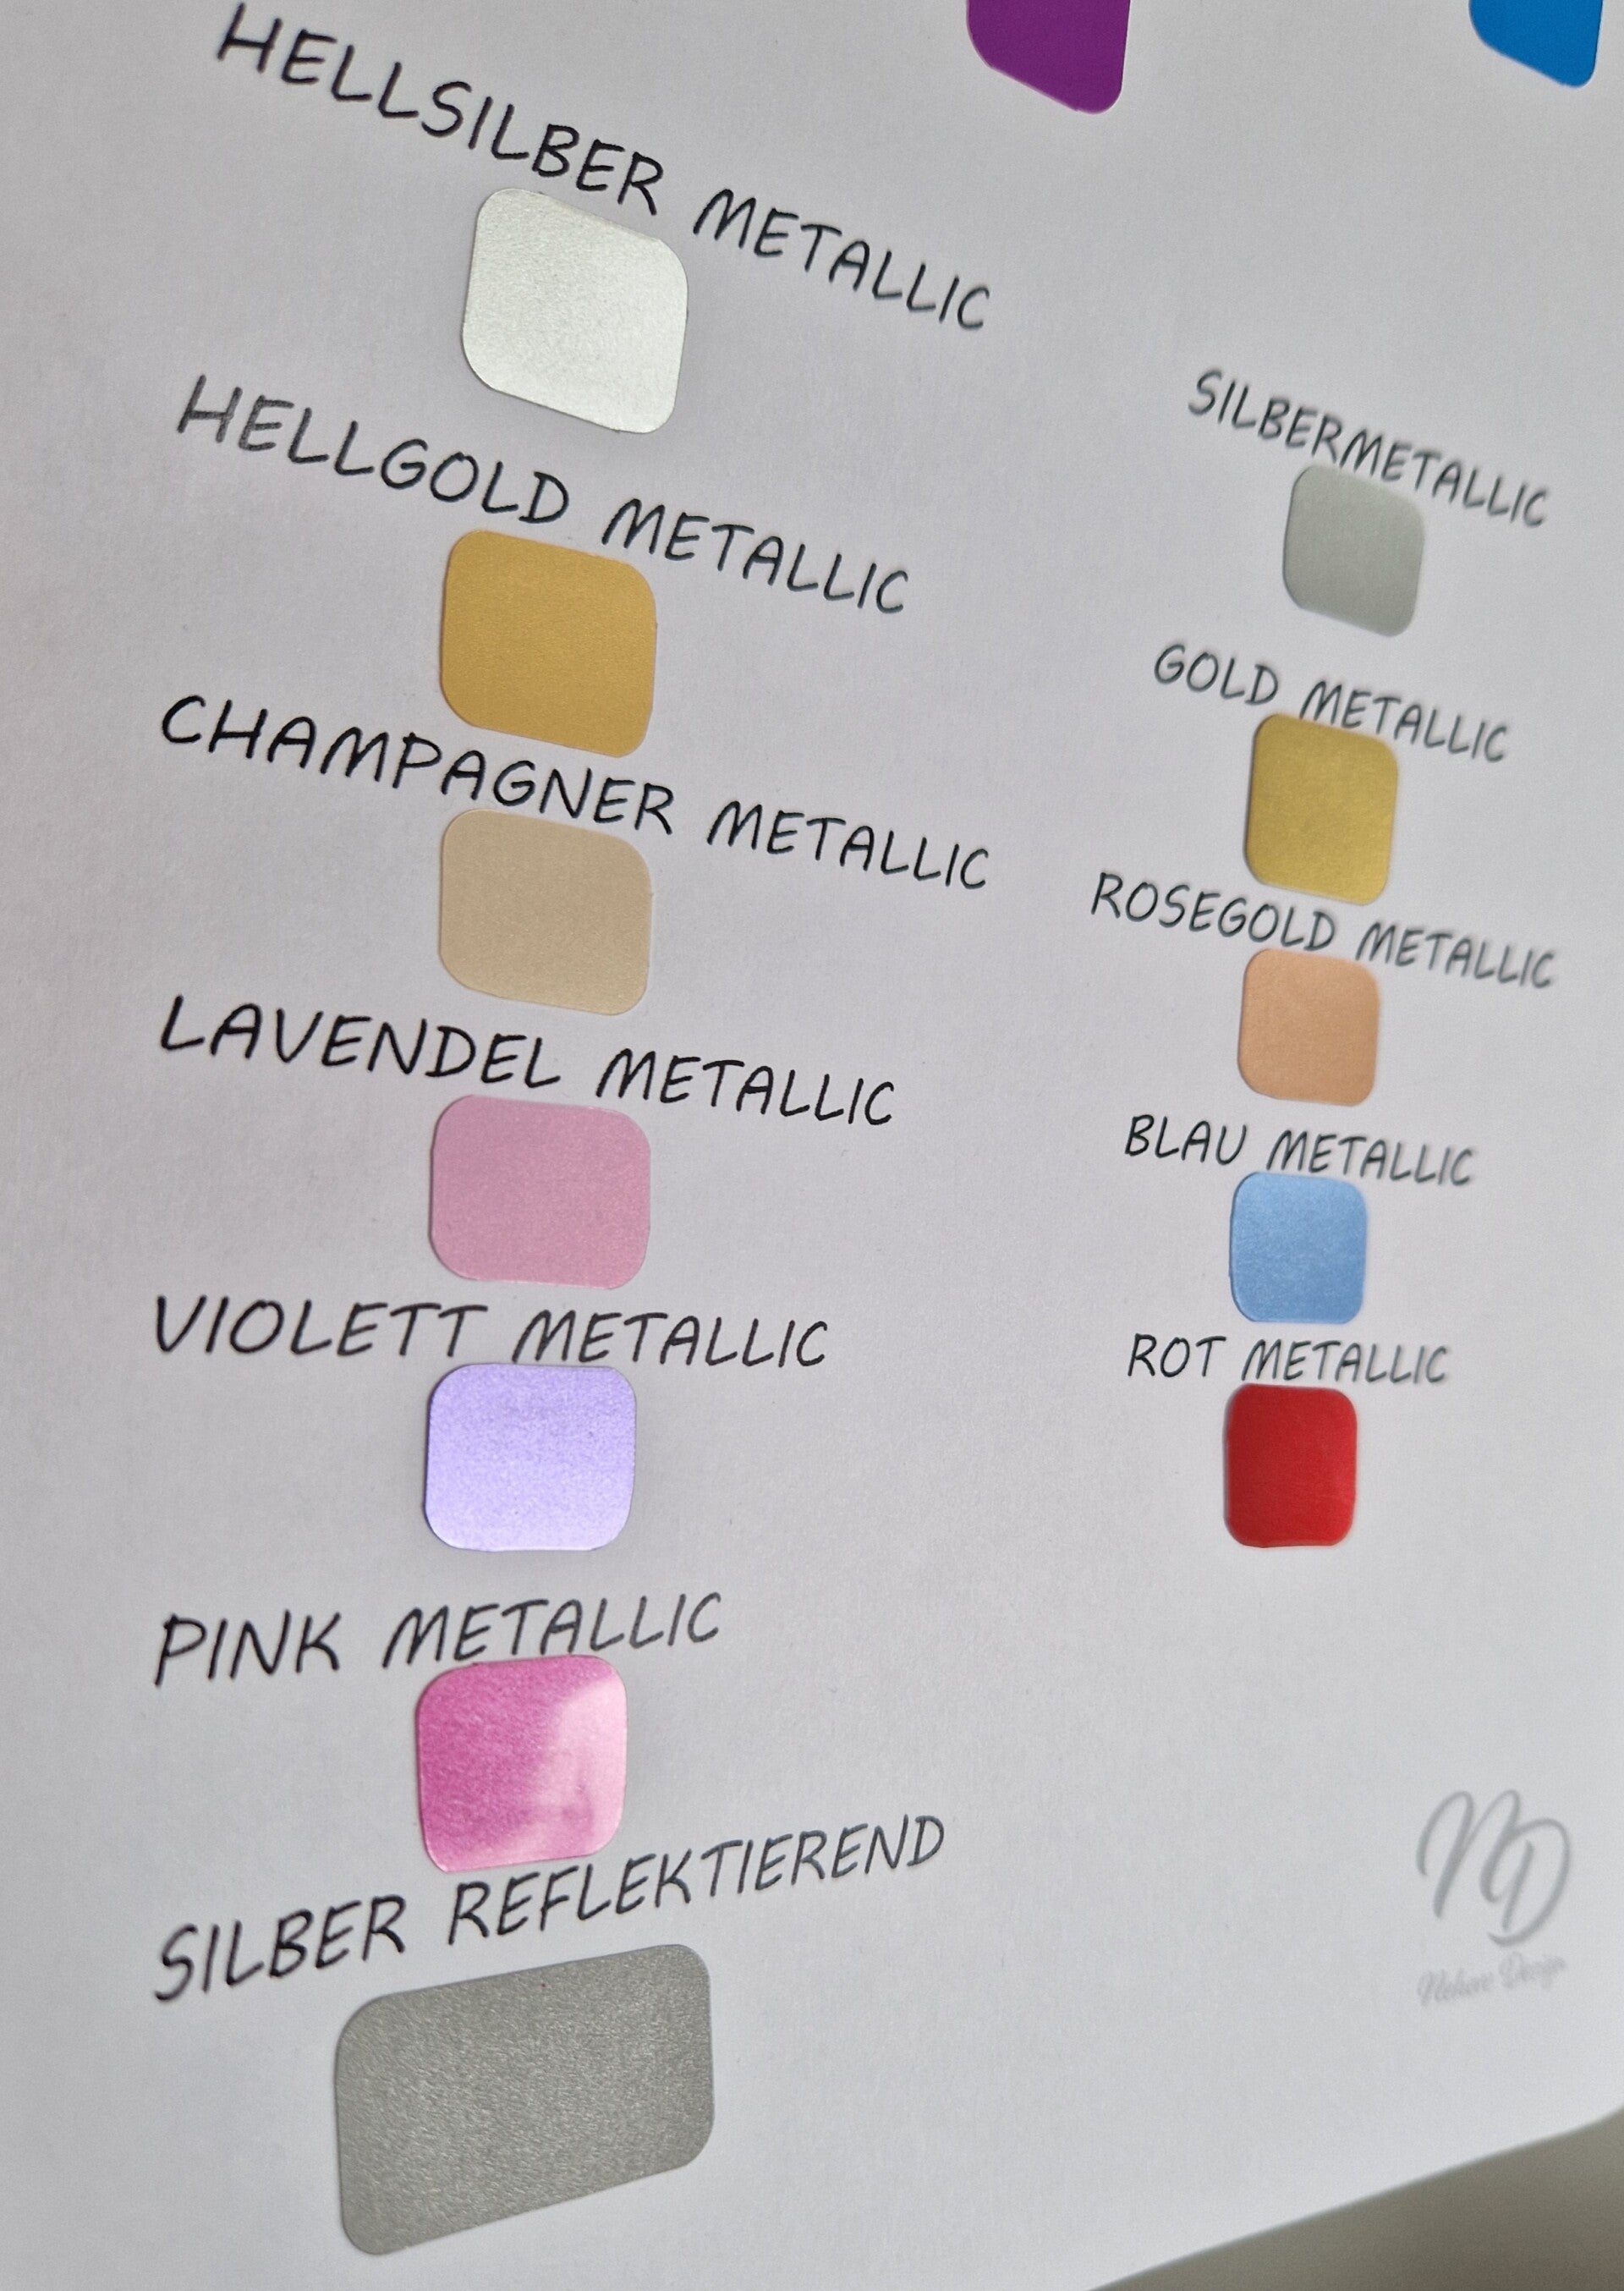 HELLSILBER METALLIC
HELLGOLD METALLIC
CHAMPAGNER METALLIC
LAVENDEL METALLIC
VIOLETT METALLIC
PINK METALLIC
SILBER REFLEKTIEREND
SILBERMETALLIC
GOLD METALLIC
ROSEGOLD METALLIC
BLAU METALLIC
ROT METALLIC
ND
Design